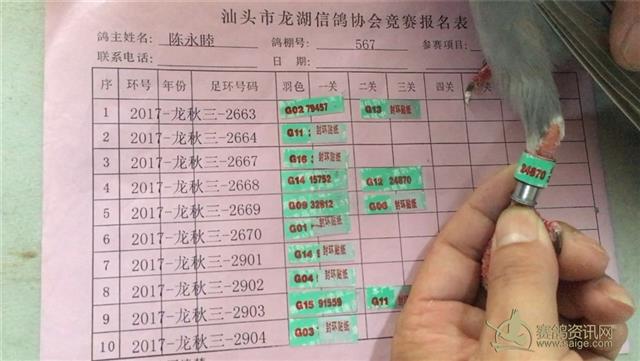 汕头市龙湖信鸽协会竞赛报名表
鸽主姓名: 陈永睦 鸽棚号: 567 参赛项目:
联系电话: 日期:
序 环号 年份 足环号码 羽色 一关 二关 三关 四关
1 2017-龙秋三-2663 G02 79457 G13 封环贴纸
2 2017-龙秋三-2664 G11 封环贴纸
3 2017-龙秋三-2667 G16 封环贴纸
4 2017-龙秋三-2668 G14 15752 G12 24870
5 2017-龙秋三-2669 G09 32812 G06 封环贴纸
6 2017-龙秋三-2670 G01
7 2017-龙秋三-2901 G14 封环贴纸
8 2017-龙秋三-2902 G04 封环贴纸
9 2017-龙秋三-2903 G15 91559 G11 封环贴纸
10 2017-龙秋三-2904 G03 封环贴纸
24870
赛鸽资讯网
www.saige.com